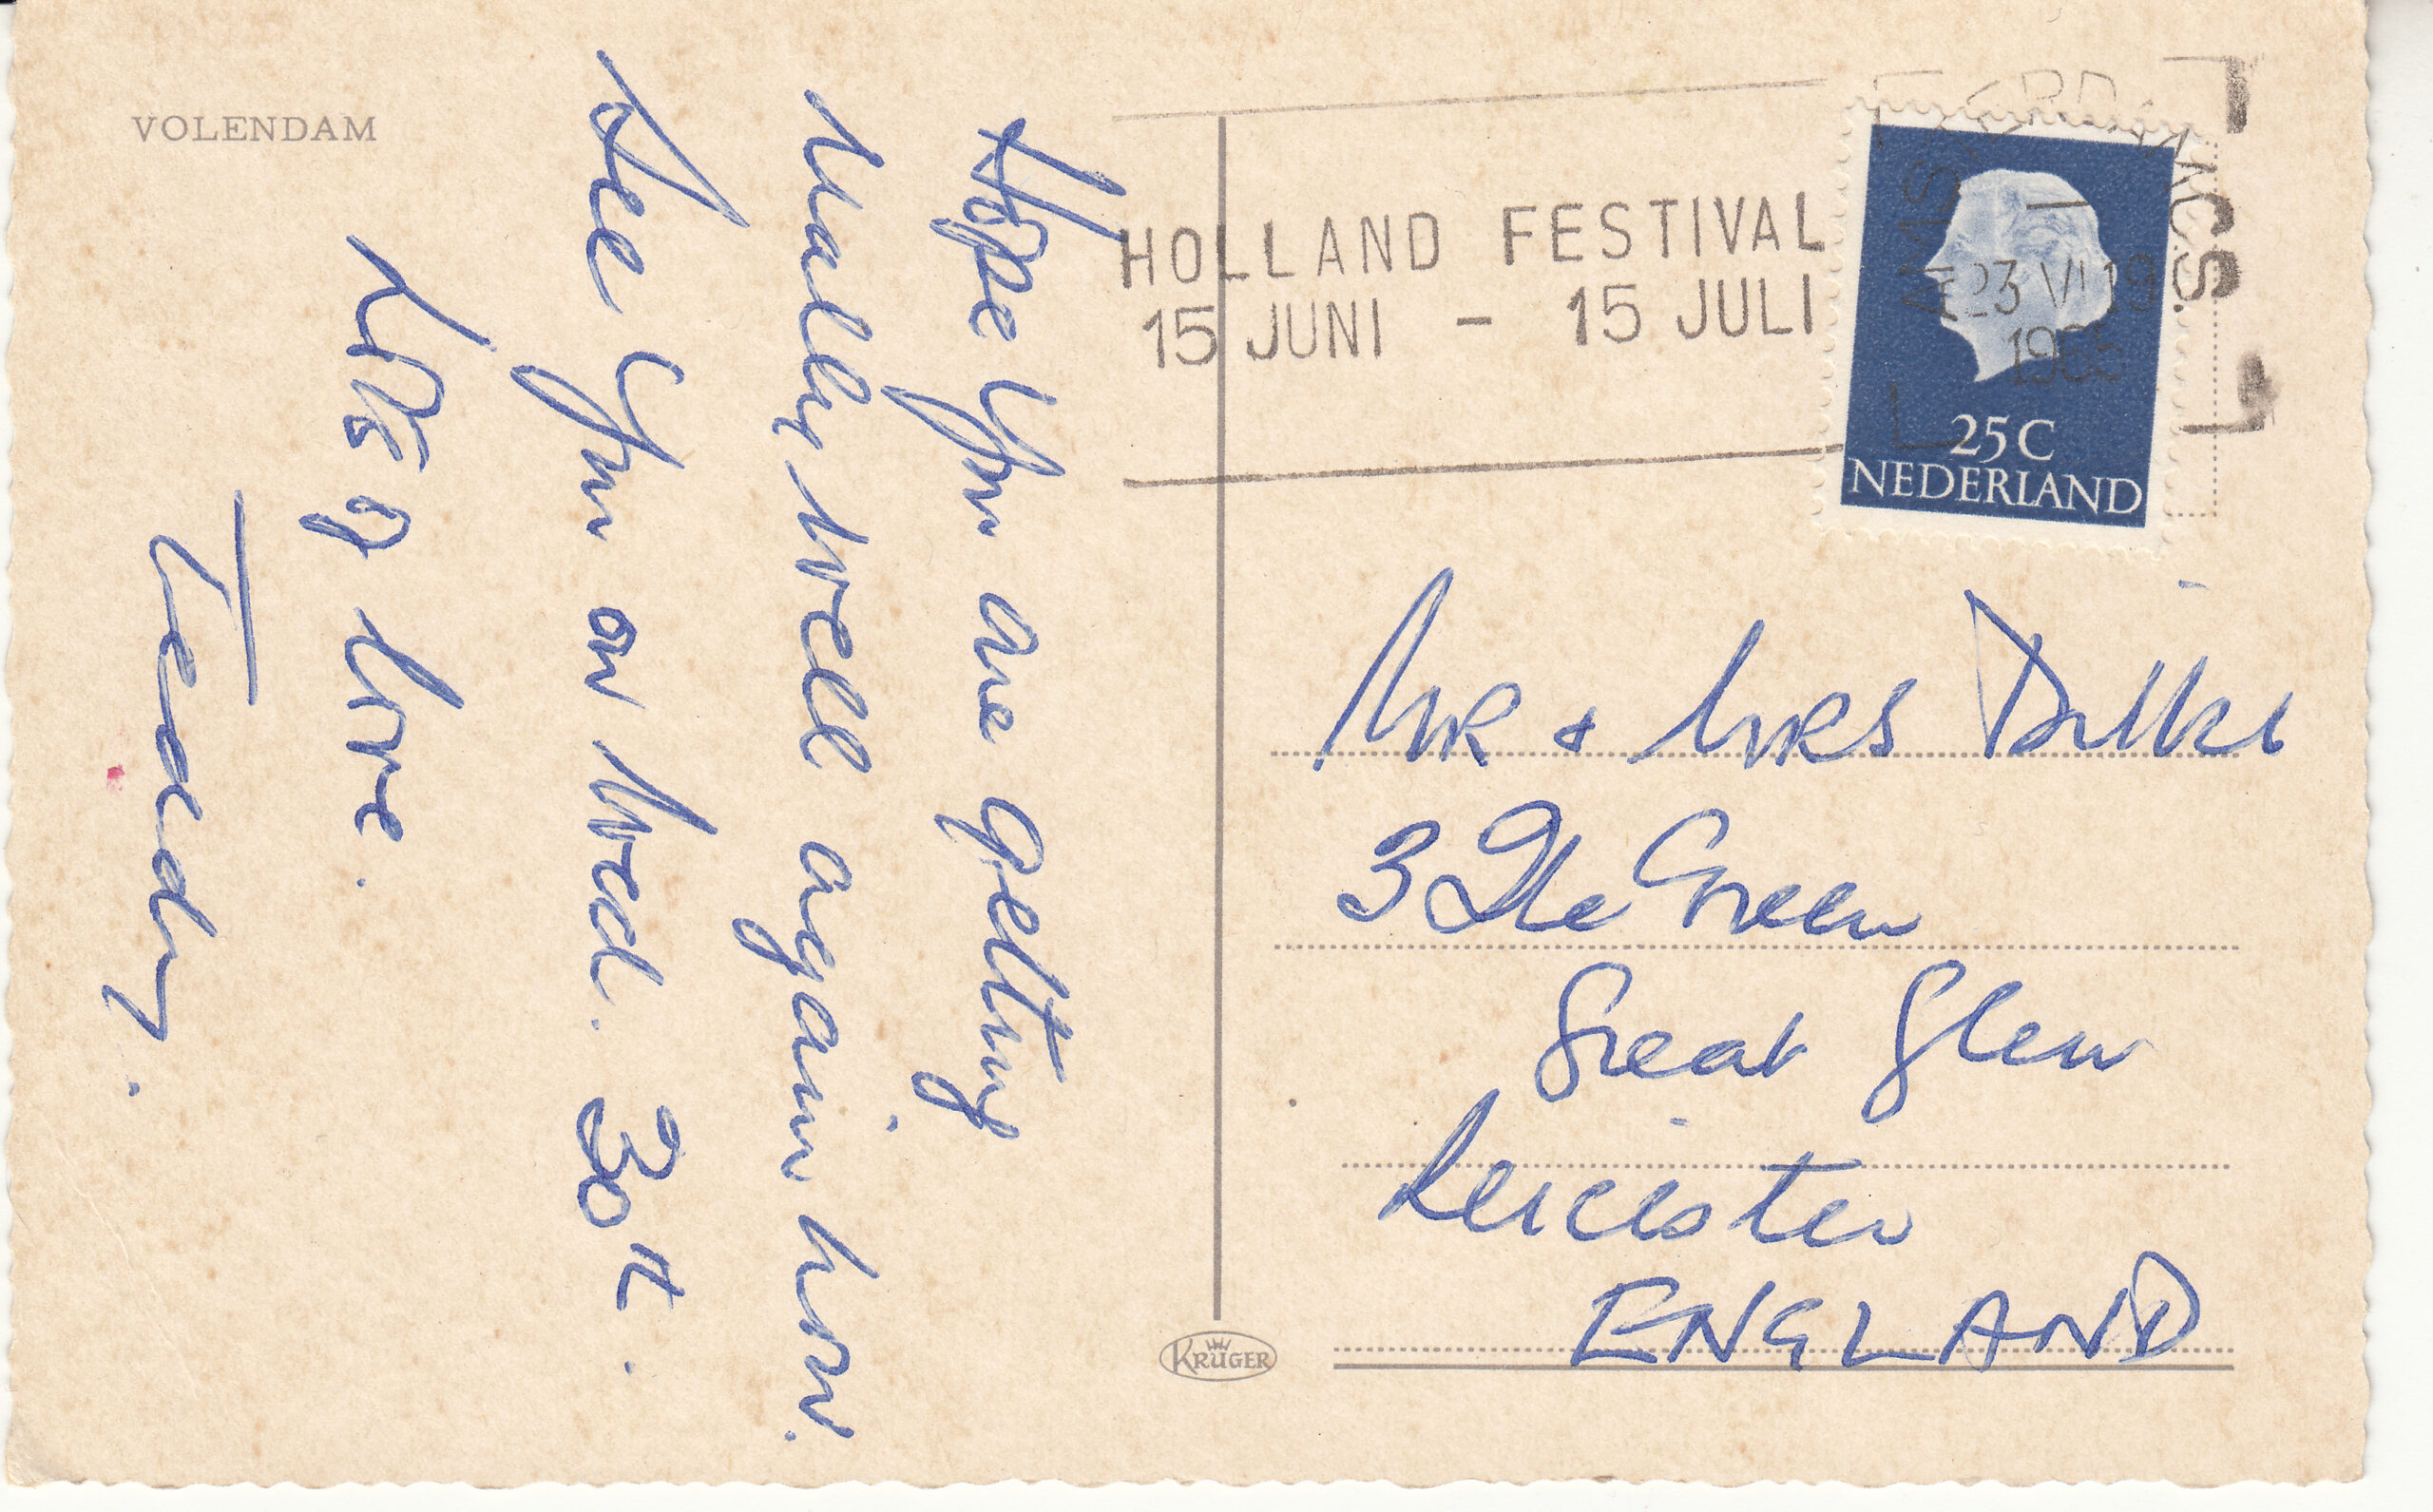 VOLENDAM
Hope you are getting
really well again now.
See you on Wed. 30th.
Kots of love.
Teddy.
HOLLAND FESTIVAL
15 JUNI - 15 JULI
AMSTERDAM C.S.
23 VI 19
25 C
NEDERLAND
Mr & Mrs
3 The Green
Great Glen
Leicester
ENGLAND
KRÜGER